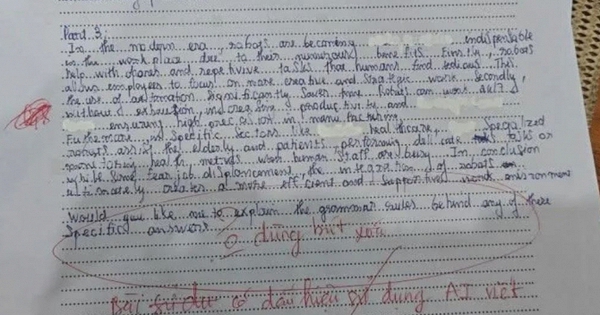 Part 3:
In the modern era, robots are becoming indispensable
in the work place due to their numerous benefits. Firstly, robots
help with chores and repetitive tasks that humans find tedious. This
allows employees to focus on more creative and strategic work. Secondly,
the use of automation significantly saves time. Robots can work 24/7
without exhaustion, increasing productivity and
ensuring high precision in manufacturing.
Furthermore, in specific sectors like healthcare, specialized
robots assist the elderly and patients, performing delicate tasks or
monitoring health metrics when human staff are busy. In conclusion
while some fear job displacement, the integration of robots
ultimately creates a more efficient and supportive work environment
Would you like me to explain the grammar rules behind any of these
specific answers
0 dùng bút xóa
Bài có dấu hiệu sử dụng AI viết